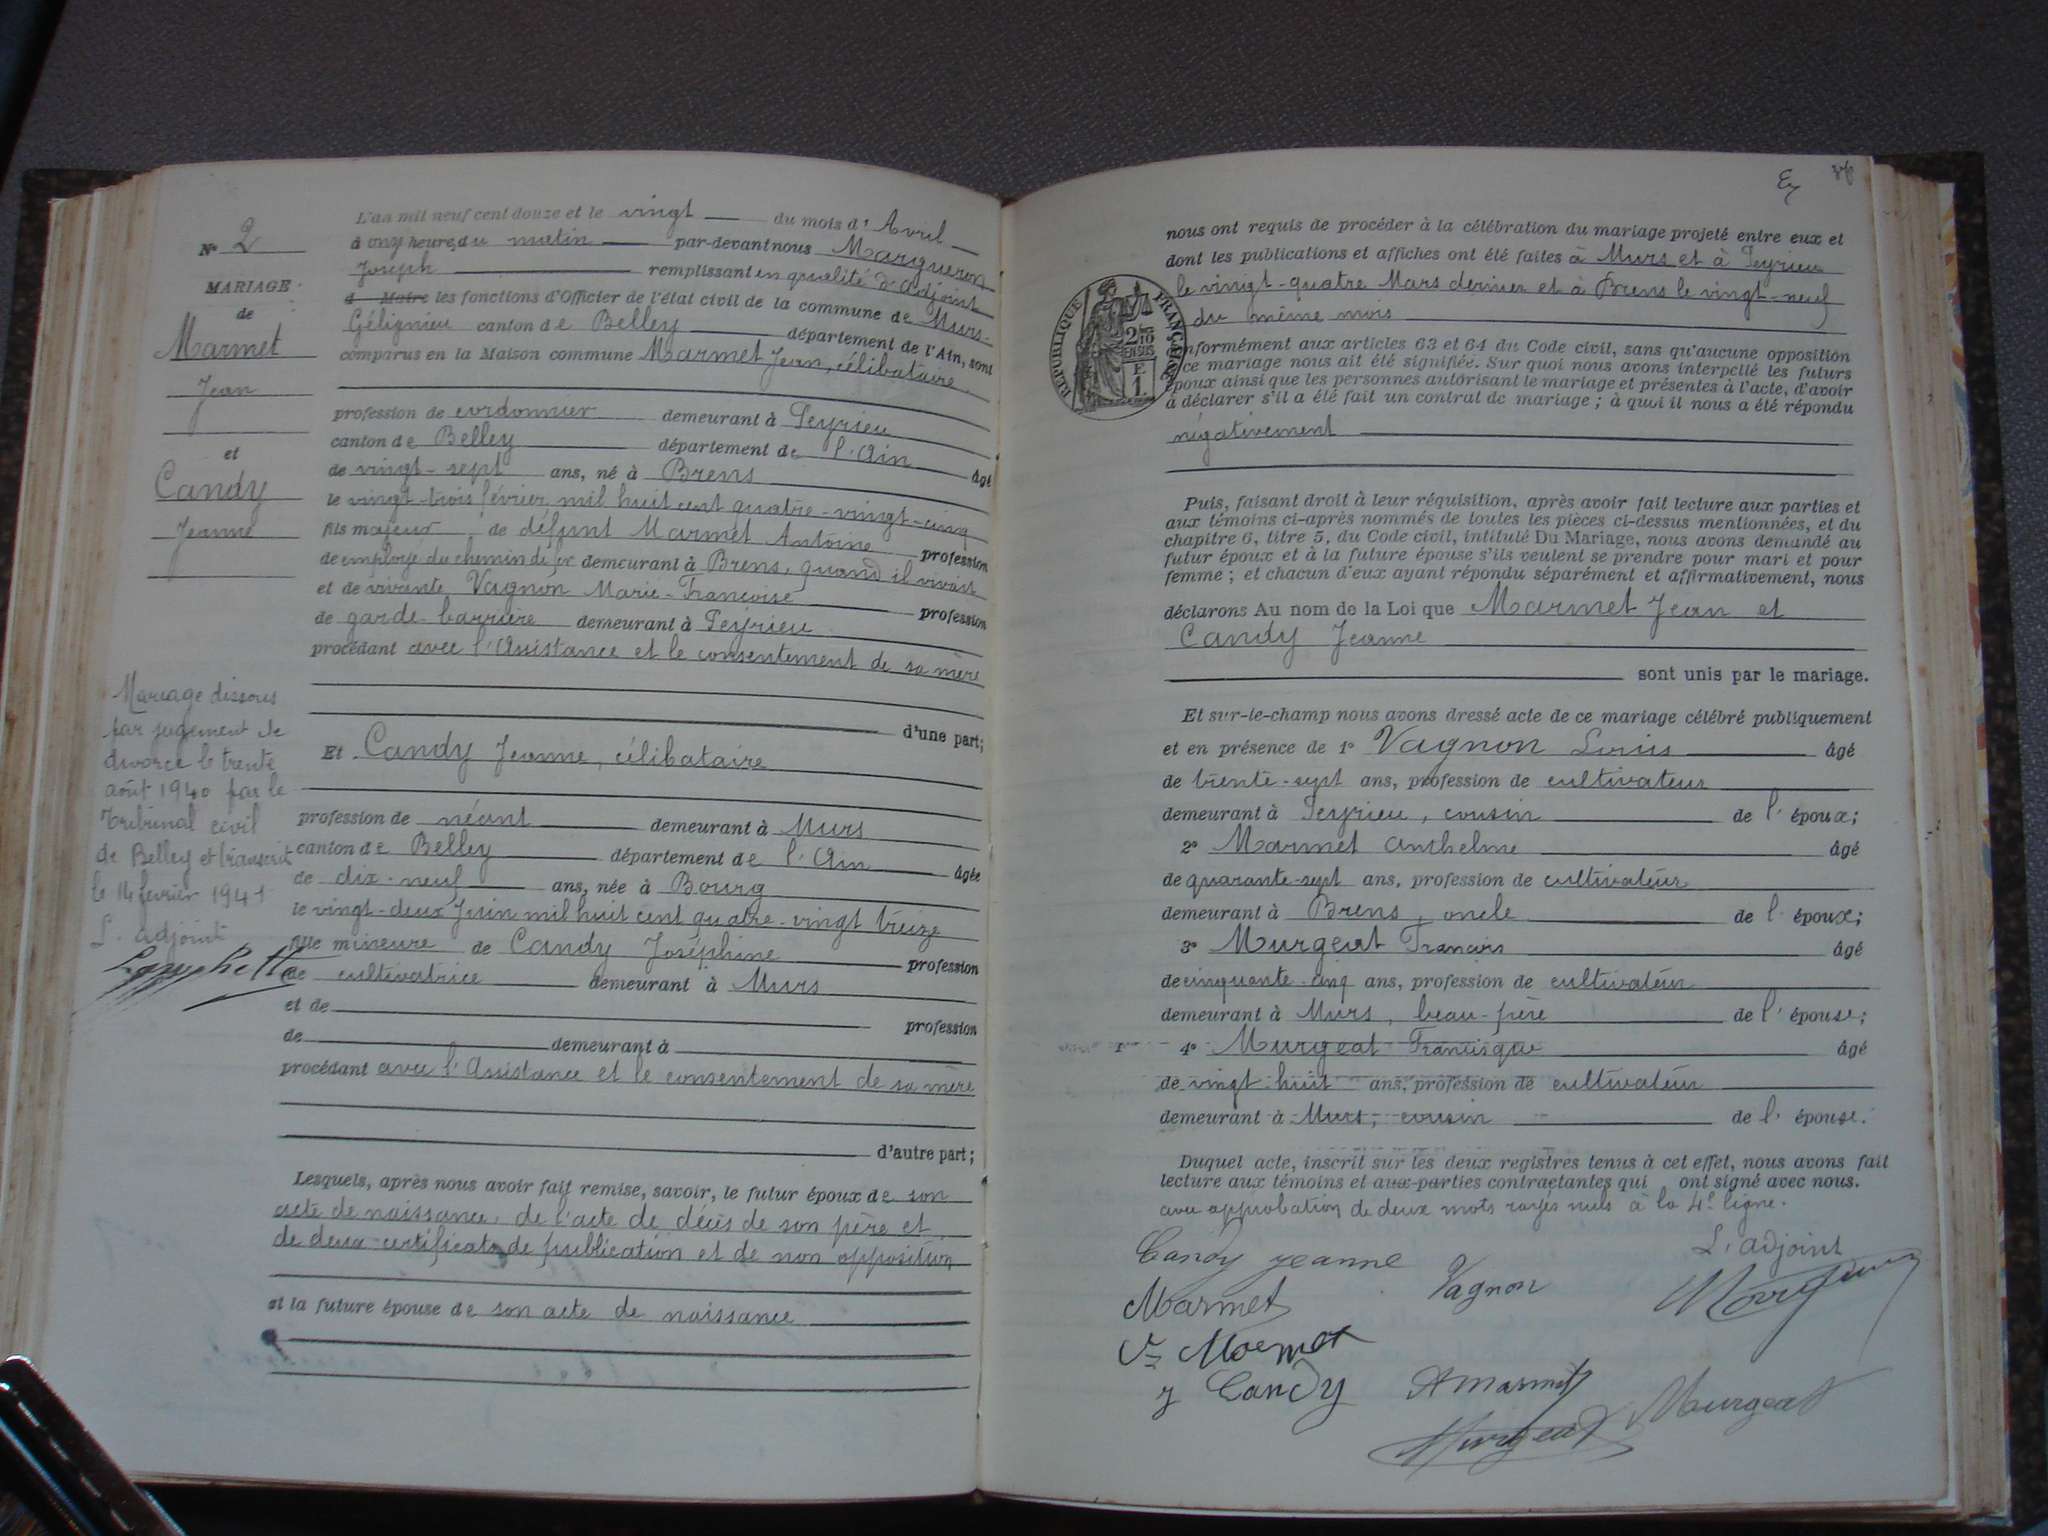 N° 2
MARIAGE
de
Marmet
Jean
et
Candy
Jeanne
Mariage dissous
par jugement de
divorce le trente
août 1940 par le
Tribunal civil
de Belley et transcrit
le 14 février 1941
L'adjoint
L'an mil neuf cent douze et le vingt du mois d'Avril
à onze heures du matin par-devant nous Margueron
Joseph remplissant en qualité d'adjoint
d Maire les fonctions d'Officier de l'état civil de la commune de Murs-
Gélignieu canton de Belley département de l'Ain, sont
comparus en la Maison commune Marmet Jean, célibataire
profession de cordonnier demeurant à Peyrieu
canton de Belley département de l'Ain âgé
de vingt-sept ans, né à Brens
le vingt-trois février mil huit cent quatre-vingt-cinq
fils majeur de défunt Marmet Antoine profession
de employé du chemin de fer demeurant à Brens, quand il vivait
et de vivante Vagnon Marie-Françoise profession
de garde-barrière demeurant à Peyrieu
procédant avec l'Assistance et le consentement de sa mère
d'une part;
Et Candy Jeanne, célibataire
profession de néant demeurant à Murs
canton de Belley département de l'Ain âgée
de dix-neuf ans, née à Bourg
le vingt-deux Juin mil huit cent quatre-vingt treize
fille mineure de Candy Joséphine profession
de cultivatrice demeurant à Murs
et de profession
de demeurant à
procédant avec l'Assistance et le consentement de sa mère
d'autre part;
Lesquels, après nous avoir fait remise, savoir, le futur époux de son
acte de naissance, de l'acte de décès de son père et
de deux certificats de publication et de non opposition
et la future épouse de son acte de naissance
nous ont requis de procéder à la célébration du mariage projeté entre eux et
dont les publications et affiches ont été faites à Murs et à Peyrieu
le vingt-quatre Mars dernier et à Brens le vingt-neuf
du même mois
RÉPUBLIQUE FRANÇAISE
2/10
EN SUS
E
1.
nformément aux articles 63 et 64 du Code civil, sans qu'aucune opposition
ce mariage nous ait été signifiée. Sur quoi nous avons interpellé les futurs
poux ainsi que les personnes autorisant le mariage et présentes à l'acte, d'avoir
à déclarer s'il a été fait un contrat de mariage; à quoi il nous a été répondu
négativement
Puis, faisant droit à leur réquisition, après avoir fait lecture aux parties et
aux témoins ci-après nommés de toutes les pièces ci-dessus mentionnées, et du
chapitre 6, titre 5, du Code civil, intitulé Du Mariage, nous avons demandé au
futur époux et à la future épouse s'ils veulent se prendre pour mari et pour
femme; et chacun d'eux ayant répondu séparément et affirmativement, nous
déclarons Au nom de la Loi que Marmet Jean et
Candy Jeanne
sont unis par le mariage.
Et sur-le-champ nous avons dressé acte de ce mariage célébré publiquement
et en présence de 1° Vagnon Louis âgé
de trente-sept ans, profession de cultivateur
demeurant à Peyrieu, cousin de l'époux;
2° Marmet Anthelme âgé
de quarante-sept ans, profession de cultivateur
demeurant à Brens, oncle de l'époux;
3° Murgeat Francois âgé
de cinquante-cinq ans, profession de cultivateur
demeurant à Murs, beau-père de l'épouse;
4° Murgeat Francisque âgé
de vingt huit ans, profession de cultivateur
demeurant à Murs, cousin de l'épouse.
Duquel acte, inscrit sur les deux registres tenus à cet effet, nous avons fait
lecture aux témoins et aux parties contractantes qui ont signé avec nous.
avec approbation de deux mots rayés nuls à la 4e ligne.
Candy Jeanne
L'adjoint
Marmet
Vagnon
Margueron
Vve Marmet
J Candy
A Marmet
Murgeat
Murgeat